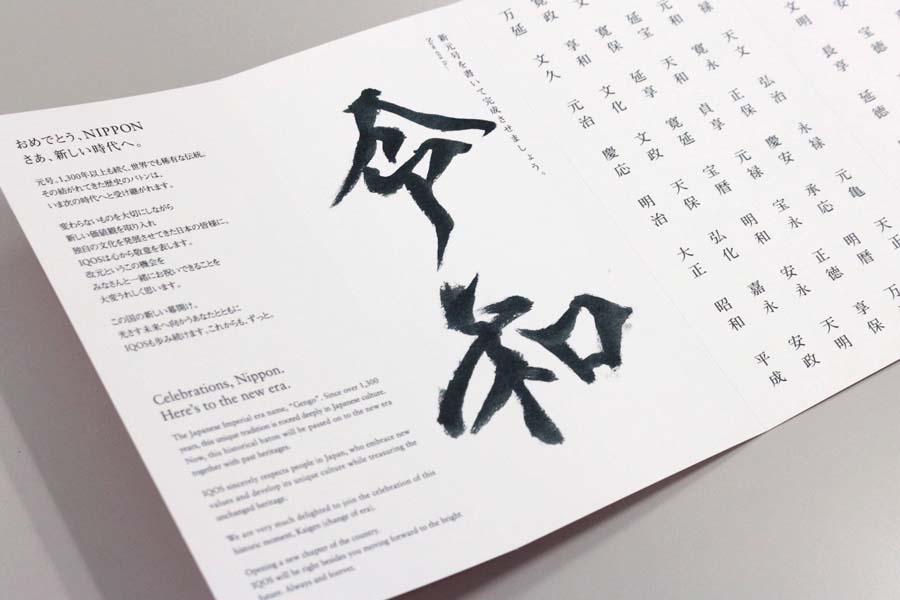 おめでとう、NIPPON
さあ、新しい時代へ。
元号。1,300年以上も続く、世界でも稀有な伝統。
その紡がれてきた歴史のバトンは、
いま次の時代へと受け継がれます。
変わらないものを大切にしながら
新しい価値観を取り入れ
独自の文化を発展させてきた日本の皆様に、
IQOSは心から敬意を表します。
改元というこの機会を
みなさんと一緒にお祝いできることを
大変うれしく思います。
この国の新しい幕開け。
光さす未来へ向かうあなたとともに
IQOSも歩み続けます。これからも、ずっと。
Celebrations, Nippon.
Here's to the new era.
The Japanese Imperial era name, "Gengo". Since over 1,300
years, this unique tradition is rooted deeply in Japanese culture.
Now, this historical baton will be passed on to the new era
together with past heritages.
IQOS sincerely respects people in Japan, who embrace new
values and develop its unique culture while treasuring the
unchanged heritage.
We are very much delighted to join the celebration of this
historic moment, Kaigen (change of era).
Opening a new chapter of the country.
IQOS will be right besides you moving forward to the bright
future. Always and forever.
新元号を書いて完成させましょう。
令和
宝徳
安
文明 長享 延徳
禄 天文 弘治 永禄 元亀 天正
元和 寛永 正保 慶安 承応 明暦 万
延宝 天和 貞享 元禄 宝永 正徳 享保
寛保 延享 寛延 宝暦 明和 安永 天明
寛政 享和 文化 文政 天保 弘化 嘉永 安政
万延 文久 元治 慶応 明治 大正 昭和 平成